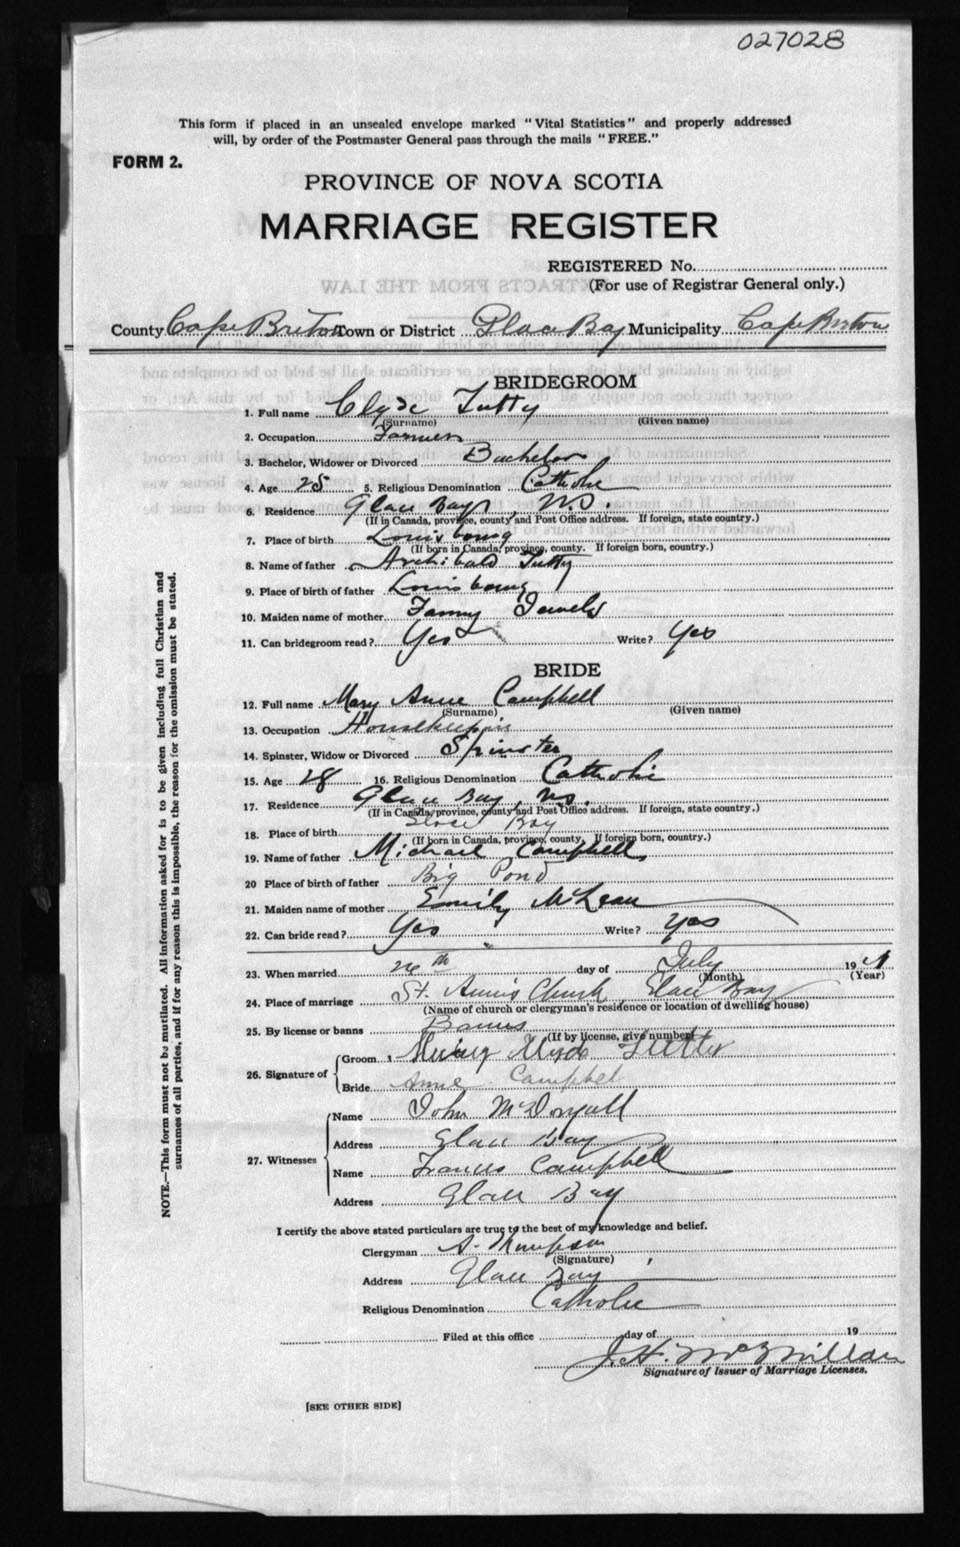 027028
This form if placed in an unsealed envelope marked "Vital Statistics" and properly addressed
will, by order of the Postmaster General pass through the mails "FREE."
FORM 2.
PROVINCE OF NOVA SCOTIA
MARRIAGE REGISTER
REGISTERED No.
(For use of Registrar General only.)
County Cape Breton Town or District Glace Bay Municipality Cape Breton
BRIDEGROOM
1. Full name Clyde Tutty
(Surname) (Given name)
2. Occupation
3. Bachelor, Widower or Divorced Bachelor
4. Age 25 5. Religious Denomination Catholic
6. Residence Glace Bay, N.S.
(If in Canada, province, county and Post Office address. If foreign, state country.)
7. Place of birth Louisbourg
(If born in Canada, province, county. If foreign born, country.)
8. Name of father Archibald Tutty
9. Place of birth of father Louisbourg
10. Maiden name of mother Fanny
11. Can bridegroom read? Yes Write? Yes
BRIDE
12. Full name Mary Anne Campbell
(Surname) (Given name)
13. Occupation Housekeeping
14. Spinster, Widow or Divorced Spinster
15. Age 28 16. Religious Denomination Catholic
17. Residence Glace Bay, NS.
(If in Canada, province, county and Post Office address. If foreign, state country.)
18. Place of birth Glace Bay
(If born in Canada, province, county. If foreign born, country.)
19. Name of father Michael Campbell
20 Place of birth of father Big Pond
21. Maiden name of mother Emily McLean
22. Can bride read? Yes Write? Yes
23. When married 26th day of July 19
(Month) (Year)
24. Place of marriage St. Anne's Church Glace Bay
(Name of church or clergyman's residence or location of dwelling house)
25. By license or banns Banns
(If by license, give number)
26. Signature of
Groom Clyde Tutty
Bride Annie Campbell
27. Witnesses
Name John McDougall
Address Glace Bay
Name Frances Campbell
Address Glace Bay
I certify the above stated particulars are true to the best of my knowledge and belief.
Clergyman A. Thompson
(Signature)
Address Glace Bay
Religious Denomination Catholic
Filed at this office day of 19
J. H. McMillan
Signature of Issuer of Marriage Licenses.
[SEE OTHER SIDE]
NOTE.—This form must not be mutilated. All information asked for is to be given including full Christian and
surnames of all parties, and if for any reason this is impossible, the reason for the omission must be stated.